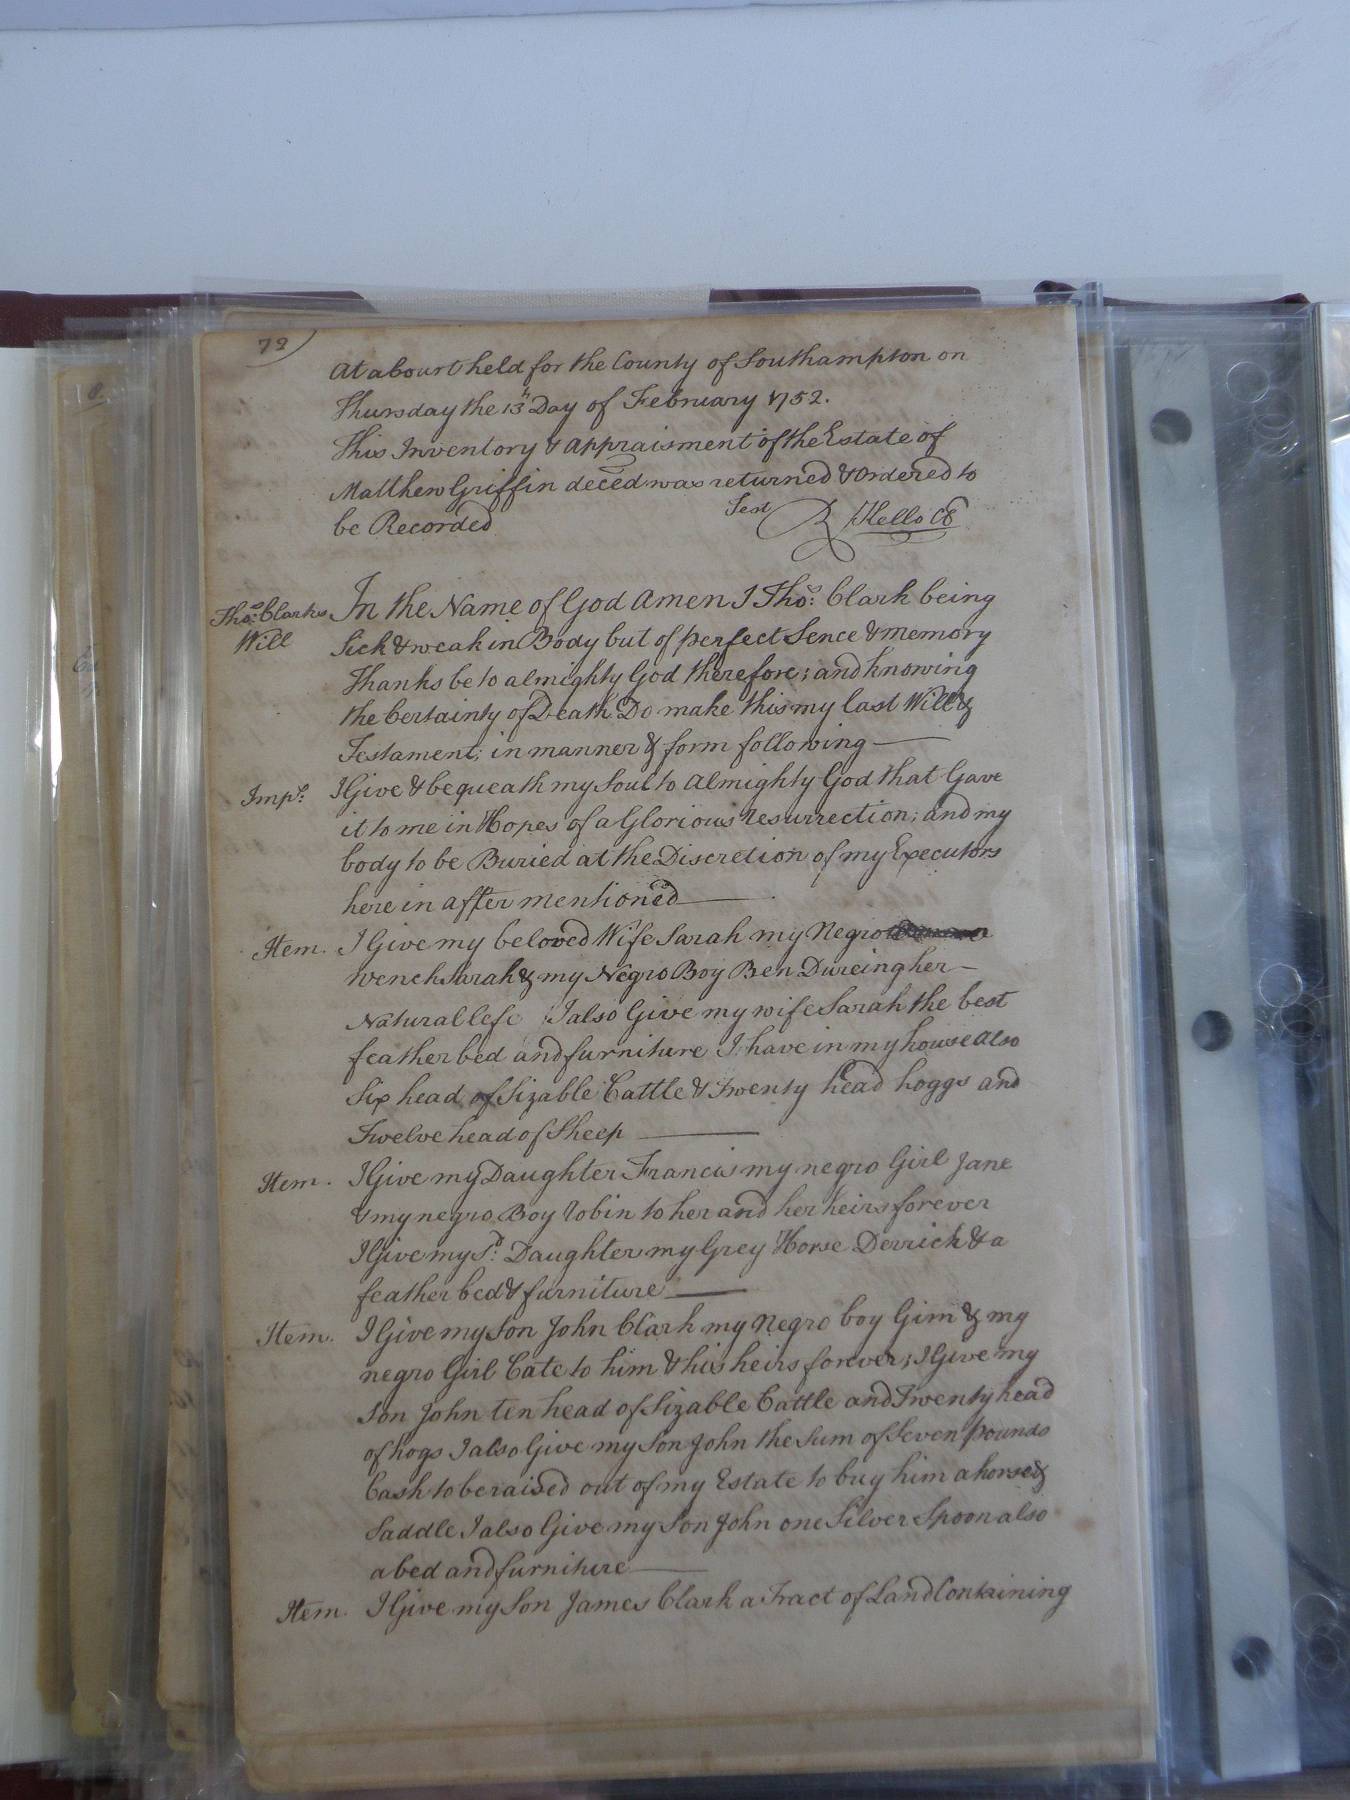 72
At a Court held for the County of Southampton on
Thursday the 13th Day of February 1752.
This Inventory & appraisment of the Estate of
Matthew Griffin deced was returned & Ordered to
be Recorded
Test R Kello CC
Thos: Clarks
Will
In the Name of God Amen I Thos: Clark being
Sick & weak in Body but of perfect Sence & memory
Thanks be to almighty God therefore; and knowing
the Certainty of Death Do make this my last Will &
Testament; in manner & form following
Imps: I Give & bequeath my Soul to Almighty God that Gave
it to me in Hopes of a Glorious resurrection; and my
body to be Buried at the Discretion of my Executors
here in after mentioned
Item. I Give my beloved Wife Sarah my Negro
wench Sarah & my Negro Boy Ben Dureing her
Natural lefe I also Give my wife Sarah the best
feather bed and furniture I have in my house also
Six head of Sizable Cattle & Twenty head hoggs and
Twelve head of Sheep
Item. I Give my Daughter Francis my negro Girl Jane
& my negro Boy Robin to her and her heirs forever
I Give my sd: Daughter my Grey Horse Derrick & a
feather bed & furniture
Item. I Give my Son John Clark my negro boy Gim & my
negro Girl Cate to him & his heirs forever; I Give my
Son John ten head of Sizable Cattle and Twenty head
of hogs I also Give my Son John the Sum of Seven pounds
Cash to be raised out of my Estate to buy him a horse &
Saddle I also Give my Son John one Silver Spoon also
a bed and furniture
Item. I Give my Son James Clark a Tract of Land Containing